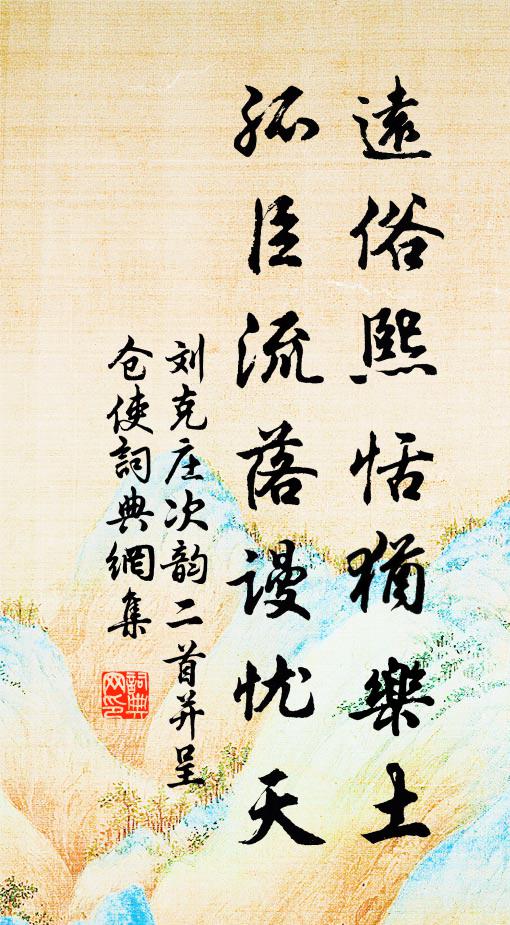 遠俗熙恬猶樂土
孤臣流落谩忧天
刘克庄次韵二首并呈
仓使詞典網集
詞典
网印